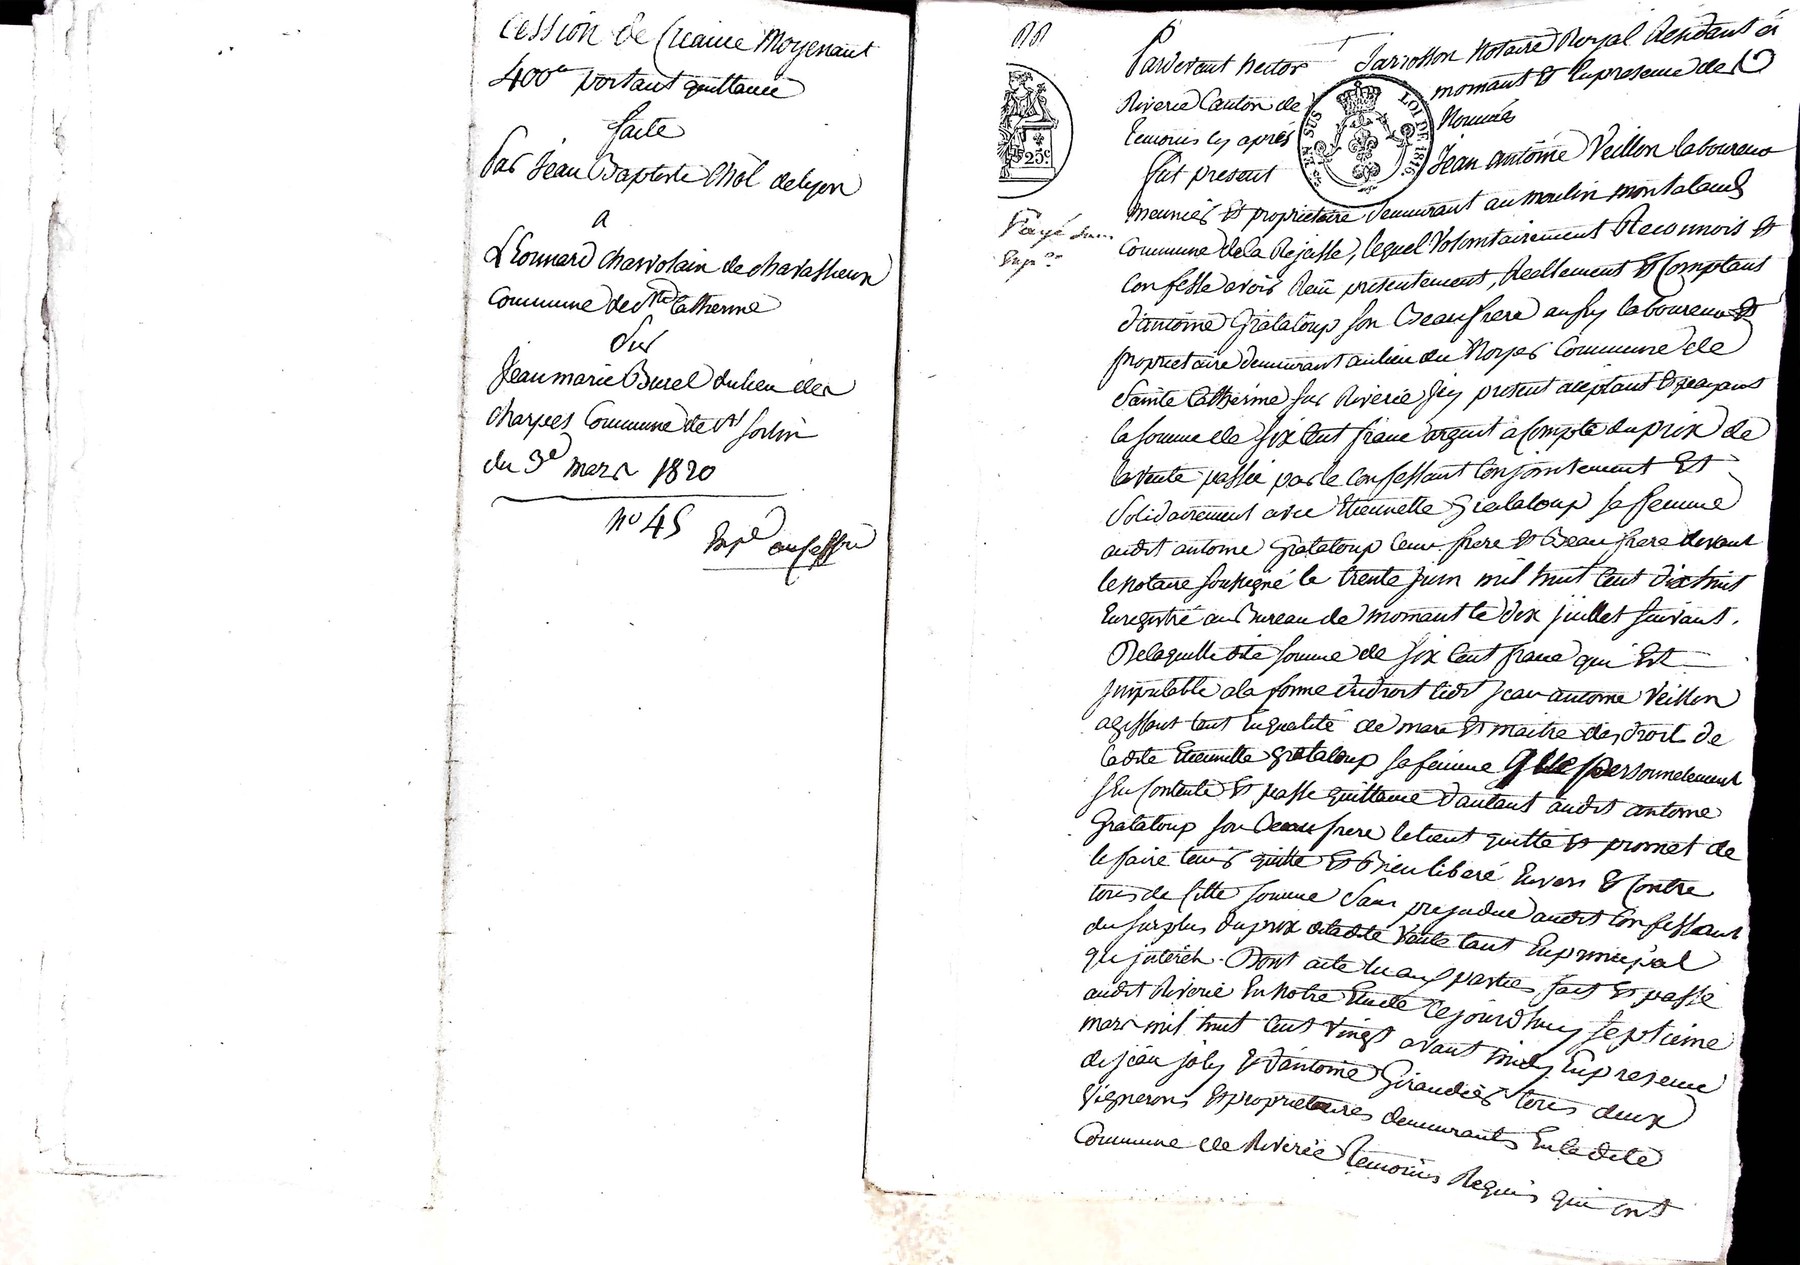 Cession de Creance Moyenant
400fr portant quittance
faite
Par Jean Baptiste Chol de lyon
a
Léonnard charvolain de chavassieux
Commune de Ste Catherine
Sur
Jean marie Burel du lieu der
charpes Commune de St Sorlin
du 3e mars 1820
no 45
Exp.é au cess.re
25c
EN SUS
LOI DE 1816
Pardevant hector Jarrosson Notaire Royal Residant à
Riverie Canton de mornant Et En presence des
temoins cy après Nommés
fut present Jean antoine Veillon laboureur
meunier Et propriétaire demeurant au moulin montaland
Commune de la Rajasse, lequel Volontairement Reconnois Et
Confesse avoir Reçu présentement, Reellement Et Comptant
d'antoine Grataloup son Beaufrere aussy laboureur Et
propriétaire demeurant au lieu du Noyer Commune de
Sainte Catherine sur Riverie jcy present aceptant Et payant
la somme de six Cent franc argent a Compte du prix de
la Vente passée par le Confessant Conjointement Et
Solidairement avec Etiennette Grataloup sa femme
audit antoine Grataloup leur frere Et Beau frere devant
le Notaire soussigné le trente juin mil huit Cent dix huit
Enregistré au Bureau de mornant le dix juillet suivant.
De laquelle dite somme de six Cent franc qui Est
jmputable a la forme du droit ledit jean antoine Veillon
agissant tant En qualité de mari Et maitre des droit de
ladite Etiennette grataloup sa femme que personnelement
s'En Contente Et passe quittance d'autant audit antoine
Grataloup son Beau frere le tient quitte Et promet de
le faire tenir quitte Et Bien liberé Envers Et Contre
tous de Cette somme sans prejudice audit Confessant
du surplus du prix de ladite Vente tant En principal
que jnterêts. Dont acte lu aux parties fait Et passé
audit Riverie En Notre Etude Cejourd'huy septieme
mars mil huit Cent Vingt avant midy En presence
de jean joly Et d'antoine Giraudier tous deux
Vignerons Et propriétaires demeurants En ladite
Commune de Riverie temoins Requis qui ont